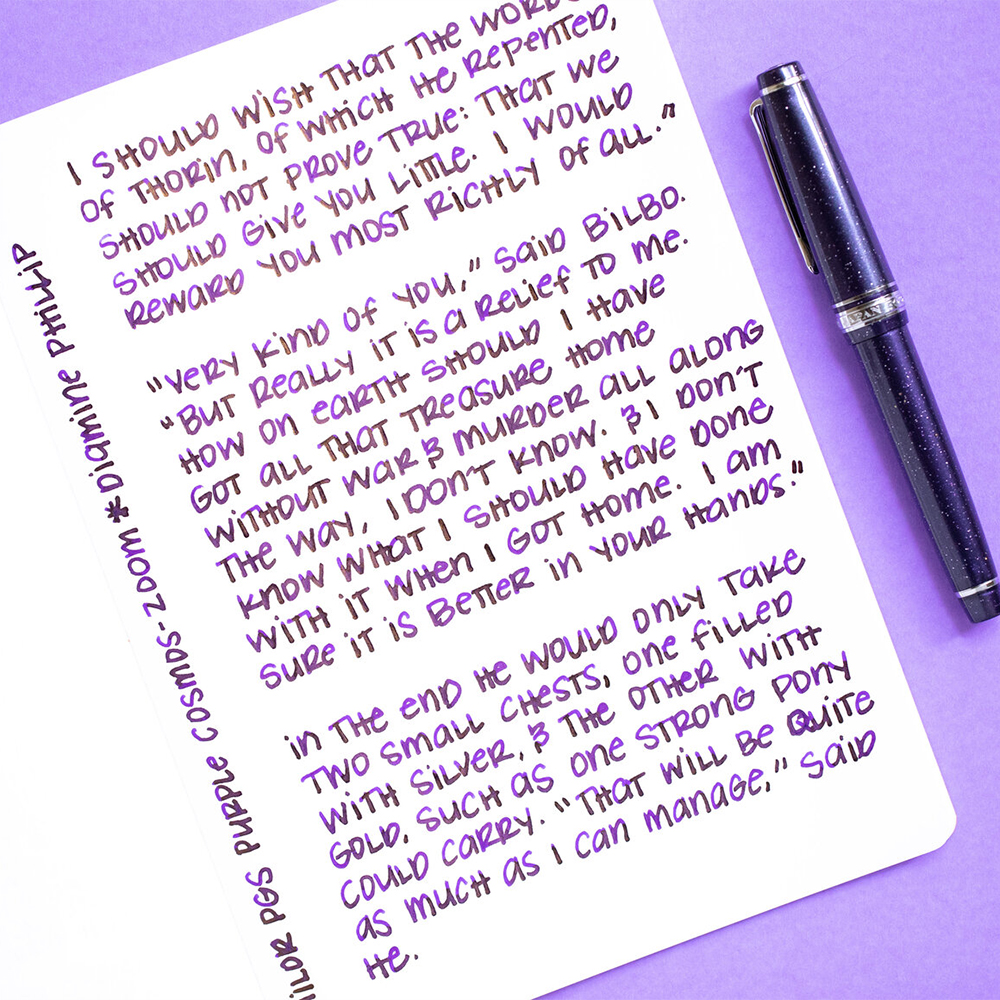 I SHOULD WISH THAT THE WORDS
OF THORIN, OF WHICH HE REPENTED,
SHOULD NOT PROVE TRUE: THAT WE
SHOULD GIVE YOU LITTLE. I WOULD
REWARD YOU MOST RICHLY OF ALL."
"VERY KIND OF YOU," SAID BILBO.
"BUT REALLY IT IS A RELIEF TO ME.
HOW ON EARTH SHOULD I HAVE
GOT ALL THAT TREASURE HOME
WITHOUT WAR & MURDER ALL ALONG
THE WAY, I DON'T KNOW. & I DON'T
KNOW WHAT I SHOULD HAVE DONE
WITH IT WHEN I GOT HOME. I AM
SURE IT IS BETTER IN YOUR HANDS."
IN THE END HE WOULD ONLY TAKE
TWO SMALL CHESTS, ONE FILLED
WITH SILVER, & THE OTHER WITH
GOLD, SUCH AS ONE STRONG PONY
COULD CARRY. "THAT WILL BE QUITE
AS MUCH AS I CAN MANAGE," SAID
HE.
PGS PURPLE COSMOS-ZOOM * DIAMINE PHILLIP